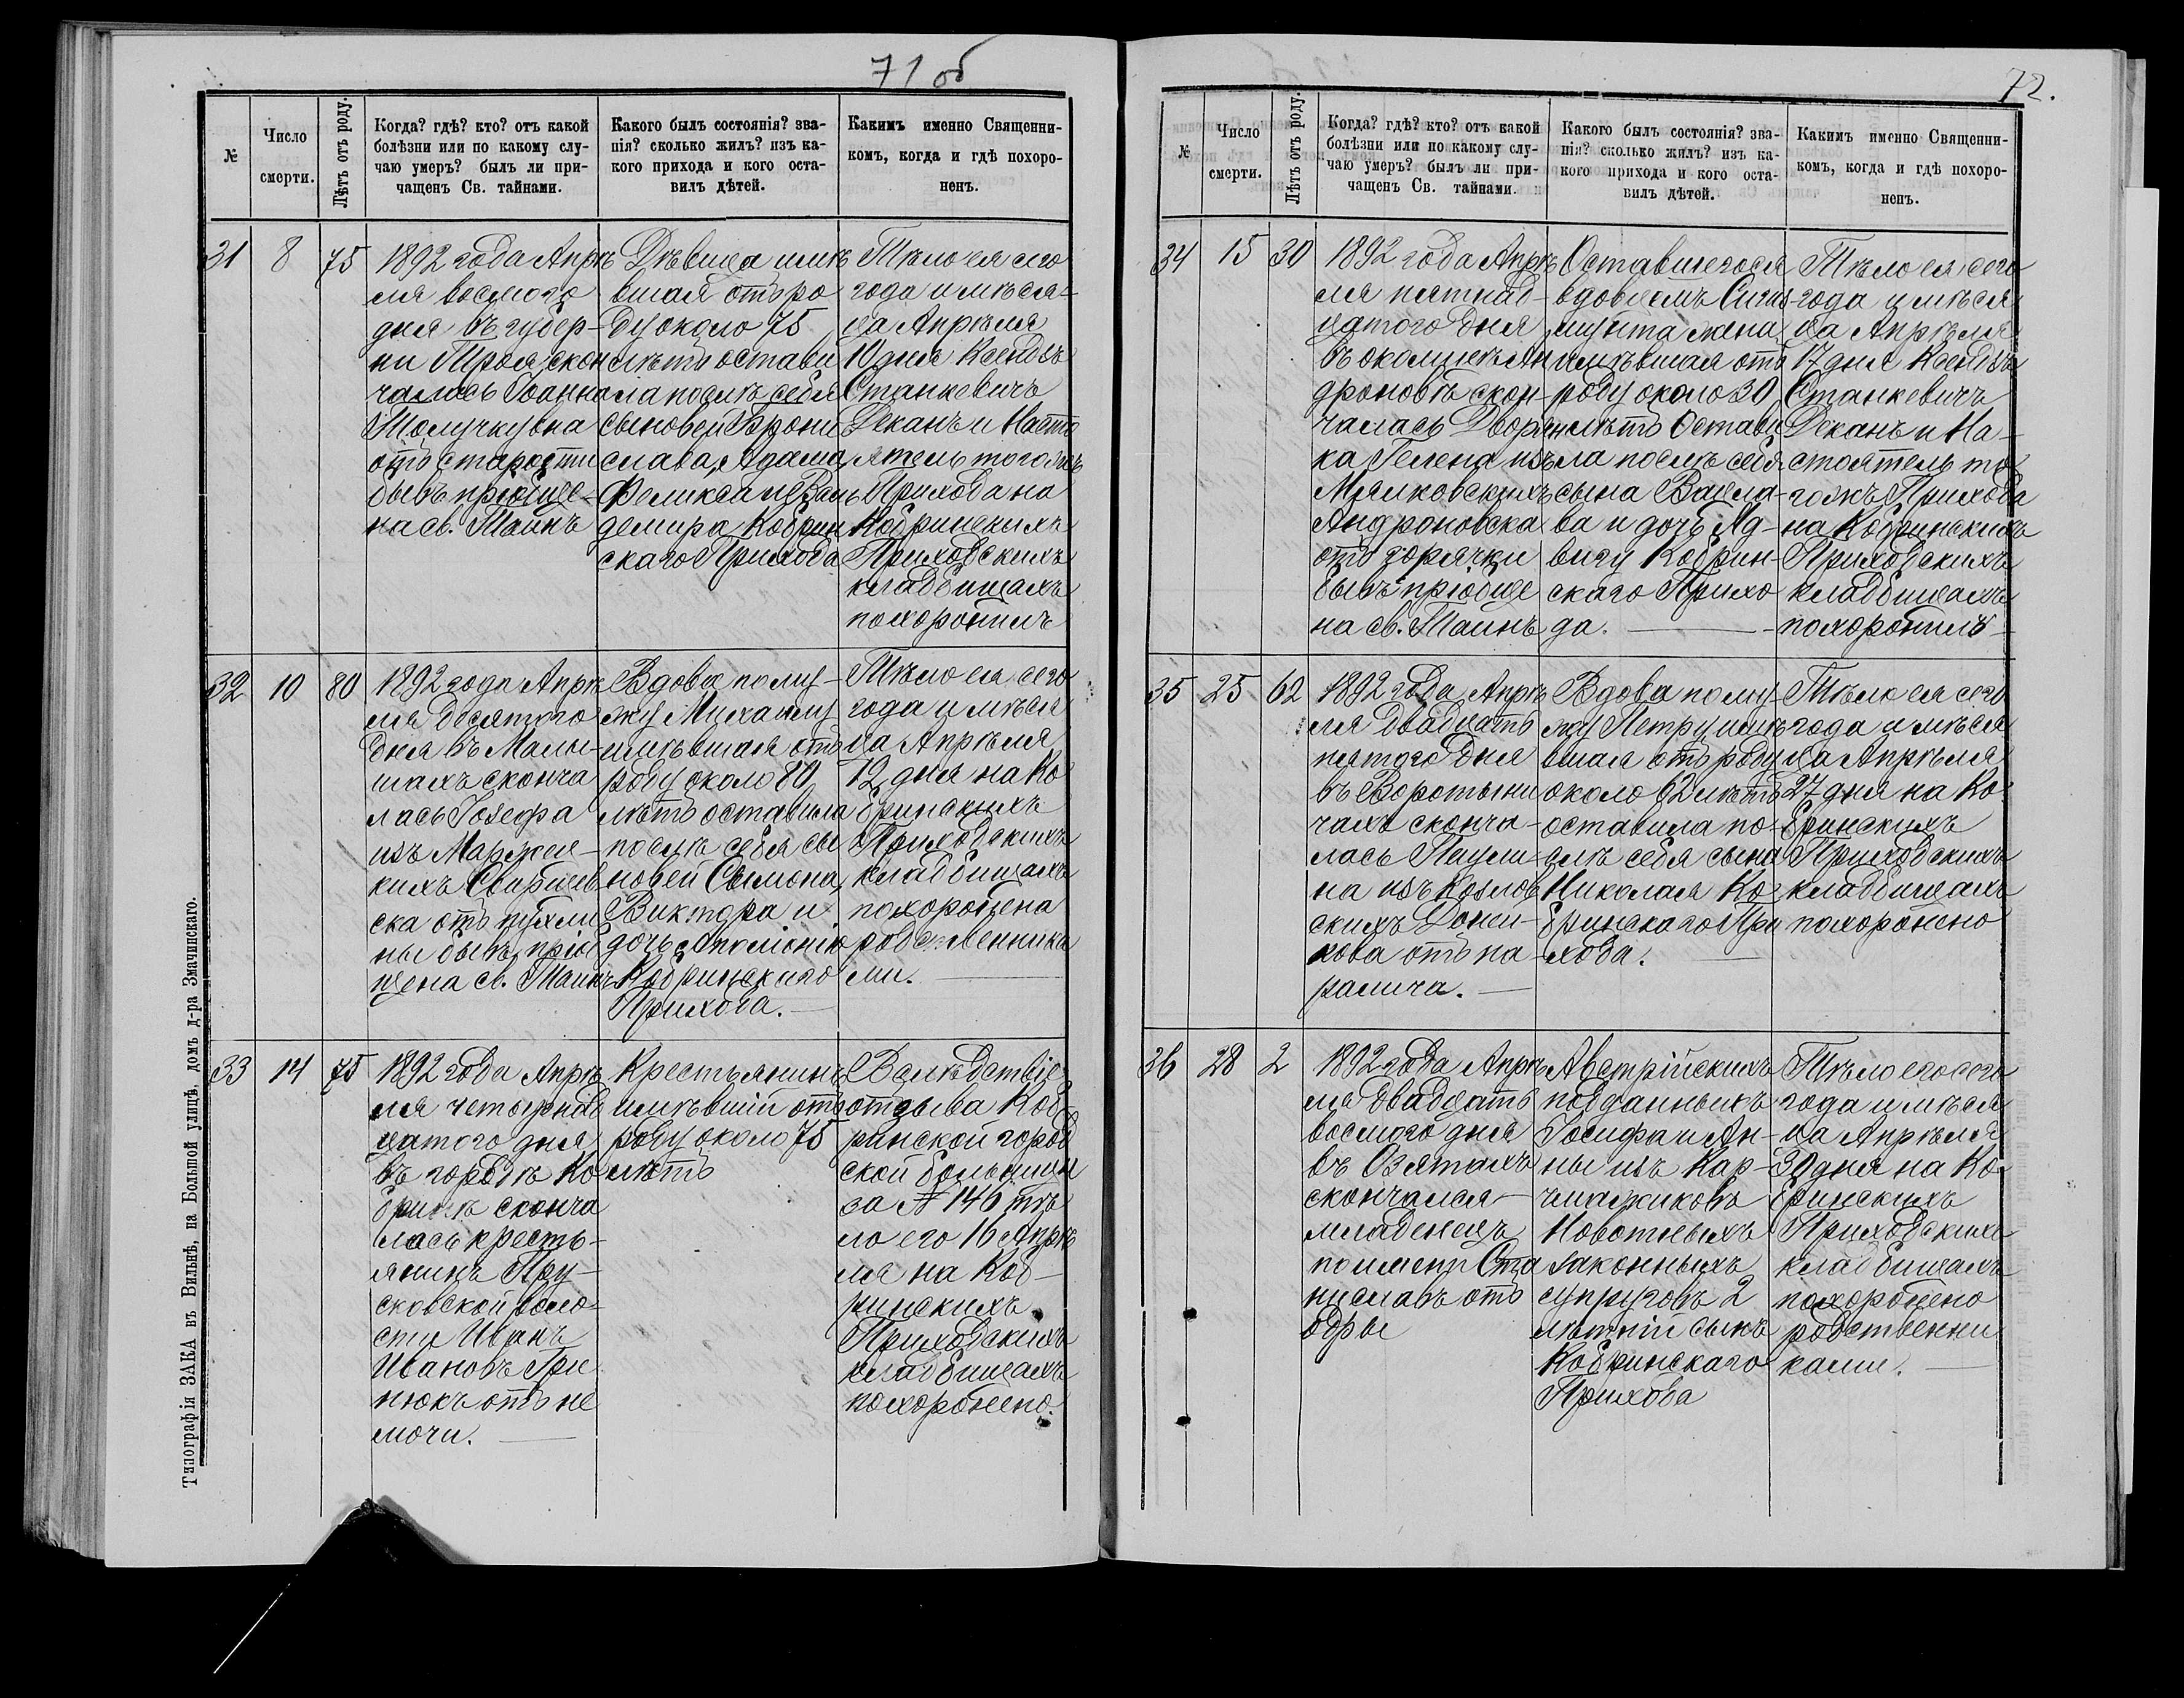 71 об
№
Число
смерти.
Лѣтъ отъ роду.
Когда? гдѣ? кто? отъ какой
болѣзни или по какому слу-
чаю умеръ? былъ ли при-
чащенъ Св. тайнами.
Какого былъ состоянія? зва-
нія? сколько жилъ? изъ ка-
кого прихода и кого оста-
вилъ дѣтей.
Какимъ именно Священни-
комъ, когда и гдѣ похоро-
ненъ.
31
8
75
1892 года Апрѣ
ля восмого
дня въ губер-
ни скон
чалась Іоанна
отъ старости
бывъ пріобще-
на св. Таинъ
Дѣвица имѣ
вшая отъ ро
ду около 75
лѣтъ остави
ла послѣ себя
сыновей Брони
слава, Адама,
Феликса и Вла
демира Кобрин
скаго Прихода
Тѣло ея сего
года и мѣся-
ца Апрѣля
10 дня Ксендзъ
Станкевичъ
Деканъ и Насто
ятель тогожъ
Прихода на
Кобринскихъ
Приходскихъ
кладбищахъ
похоронилъ
32
10
80
1892 года Апрѣ
ля десятого
дня въ Малы-
шахъ сконча
лась Іозефа
изъ
кихъ
ска отъ пухли
ны бывъ пріоб
щена св. Таинъ
Вдова по му-
жу Михаилу
имѣвшая отъ
роду около 80
лѣтъ оставила
послѣ себя сы
новей Сымона,
Виктора и
дочь Аполіонію
Кобринскаго
Прихода.
Тѣло ея сего
года и мѣся
ца Апрѣля
12 дня на Ко
бринскихъ
Приходскихъ
кладбищахъ
похоронена
родственника
ми.
33
14
75
1892 года Апрѣ
ля четырнад
цатого дня
въ городѣ Ко
бринѣ сконча
лась кресть-
янинъ Пру-
сковской воло-
сти Иванъ
Ивановъ Гри
нюкъ отъ не
мочи.
Крестьянинъ
имѣвшій отъ
роду около 75
лѣтъ
Вслѣдствіе
отзыва Коб
ринской город
ской больницы
за № 146 тѣ
ло его 16 Апрѣ
ля на Коб-
ринскихъ
Приходскихъ
кладбищахъ
похоронено.
Типографія ЗАКА въ Вильнѣ, на Большой улицѣ, домъ д-ра Змачинскаго.
72.
№
Число
смерти.
Лѣтъ отъ роду.
Когда? гдѣ? кто? отъ какой
болѣзни или по какому слу-
чаю умеръ? былъ ли при-
чащенъ Св. тайнами.
Какого былъ состоянія? зва-
нія? сколько жилъ? изъ ка-
кого прихода и кого оста-
вилъ дѣтей.
Какимъ именно Священни-
комъ, когда и гдѣ похоро-
ненъ.
34
15
30
1892 года Апрѣ
ля пятнад-
цатого дня
въ околицѣ Ан
дроновѣ скон-
чалась Дворян
ка Гелена изъ
Мялковскихъ
Андроновска
отъ горячки
бывъ пріобще
на св. Таинъ
Оставшегося
вдовцемъ Сигиз-
мунта жена
имѣвшая отъ
роду около 30
лѣтъ Остави
ла послѣ себя
сына Вацла-
ва и дочь Яд-
вигу Кобрин-
скаго Прихо
да.
Тѣло ея сего
года и мѣся
ца Апрѣля
17 дня Ксендзъ
Станкевичъ
Деканъ и На-
стоятель то-
гожъ Прихода
на Кобринскихъ
Приходскихъ
кладбищахъ
похоронилъ
35
25
62
1892 года Апрѣ
ля двадцать
пятого дня
въ Воротыни
чахъ сконча-
лась Паули-
на изъ Козлов
скихъ Донеи-
кова отъ па-
ралича.
Вдова по му-
жу Петру имѣ
вшая отъ роду
около 62 лѣтъ
оставила по-
слѣ себя сына
Николая Ко-
бринскаго При
хода.
Тѣло ея сего
года и мѣся
ца Апрѣля
27 дня на Ко-
бринскихъ
Приходскихъ
кладбищахъ
похоронено
36
28
2
1892 года Апрѣ
ля двадцать
восмого дня
въ Озятахъ
скончался
младенецъ
по имени Ста
ниславъ отъ
одры
Австрійскихъ
подданныхъ
Іосифа и Ан-
ны изъ Кар-
чмажиковъ
Новотныхъ
законныхъ
супруговъ 2
лѣтній сынъ
Кобринскаго
Прихода
Тѣло его сего
года и мѣся
ца Апрѣля
30 дня на Ко-
бринскихъ
Приходскихъ
кладбищахъ
похоронено
родственни
ками.